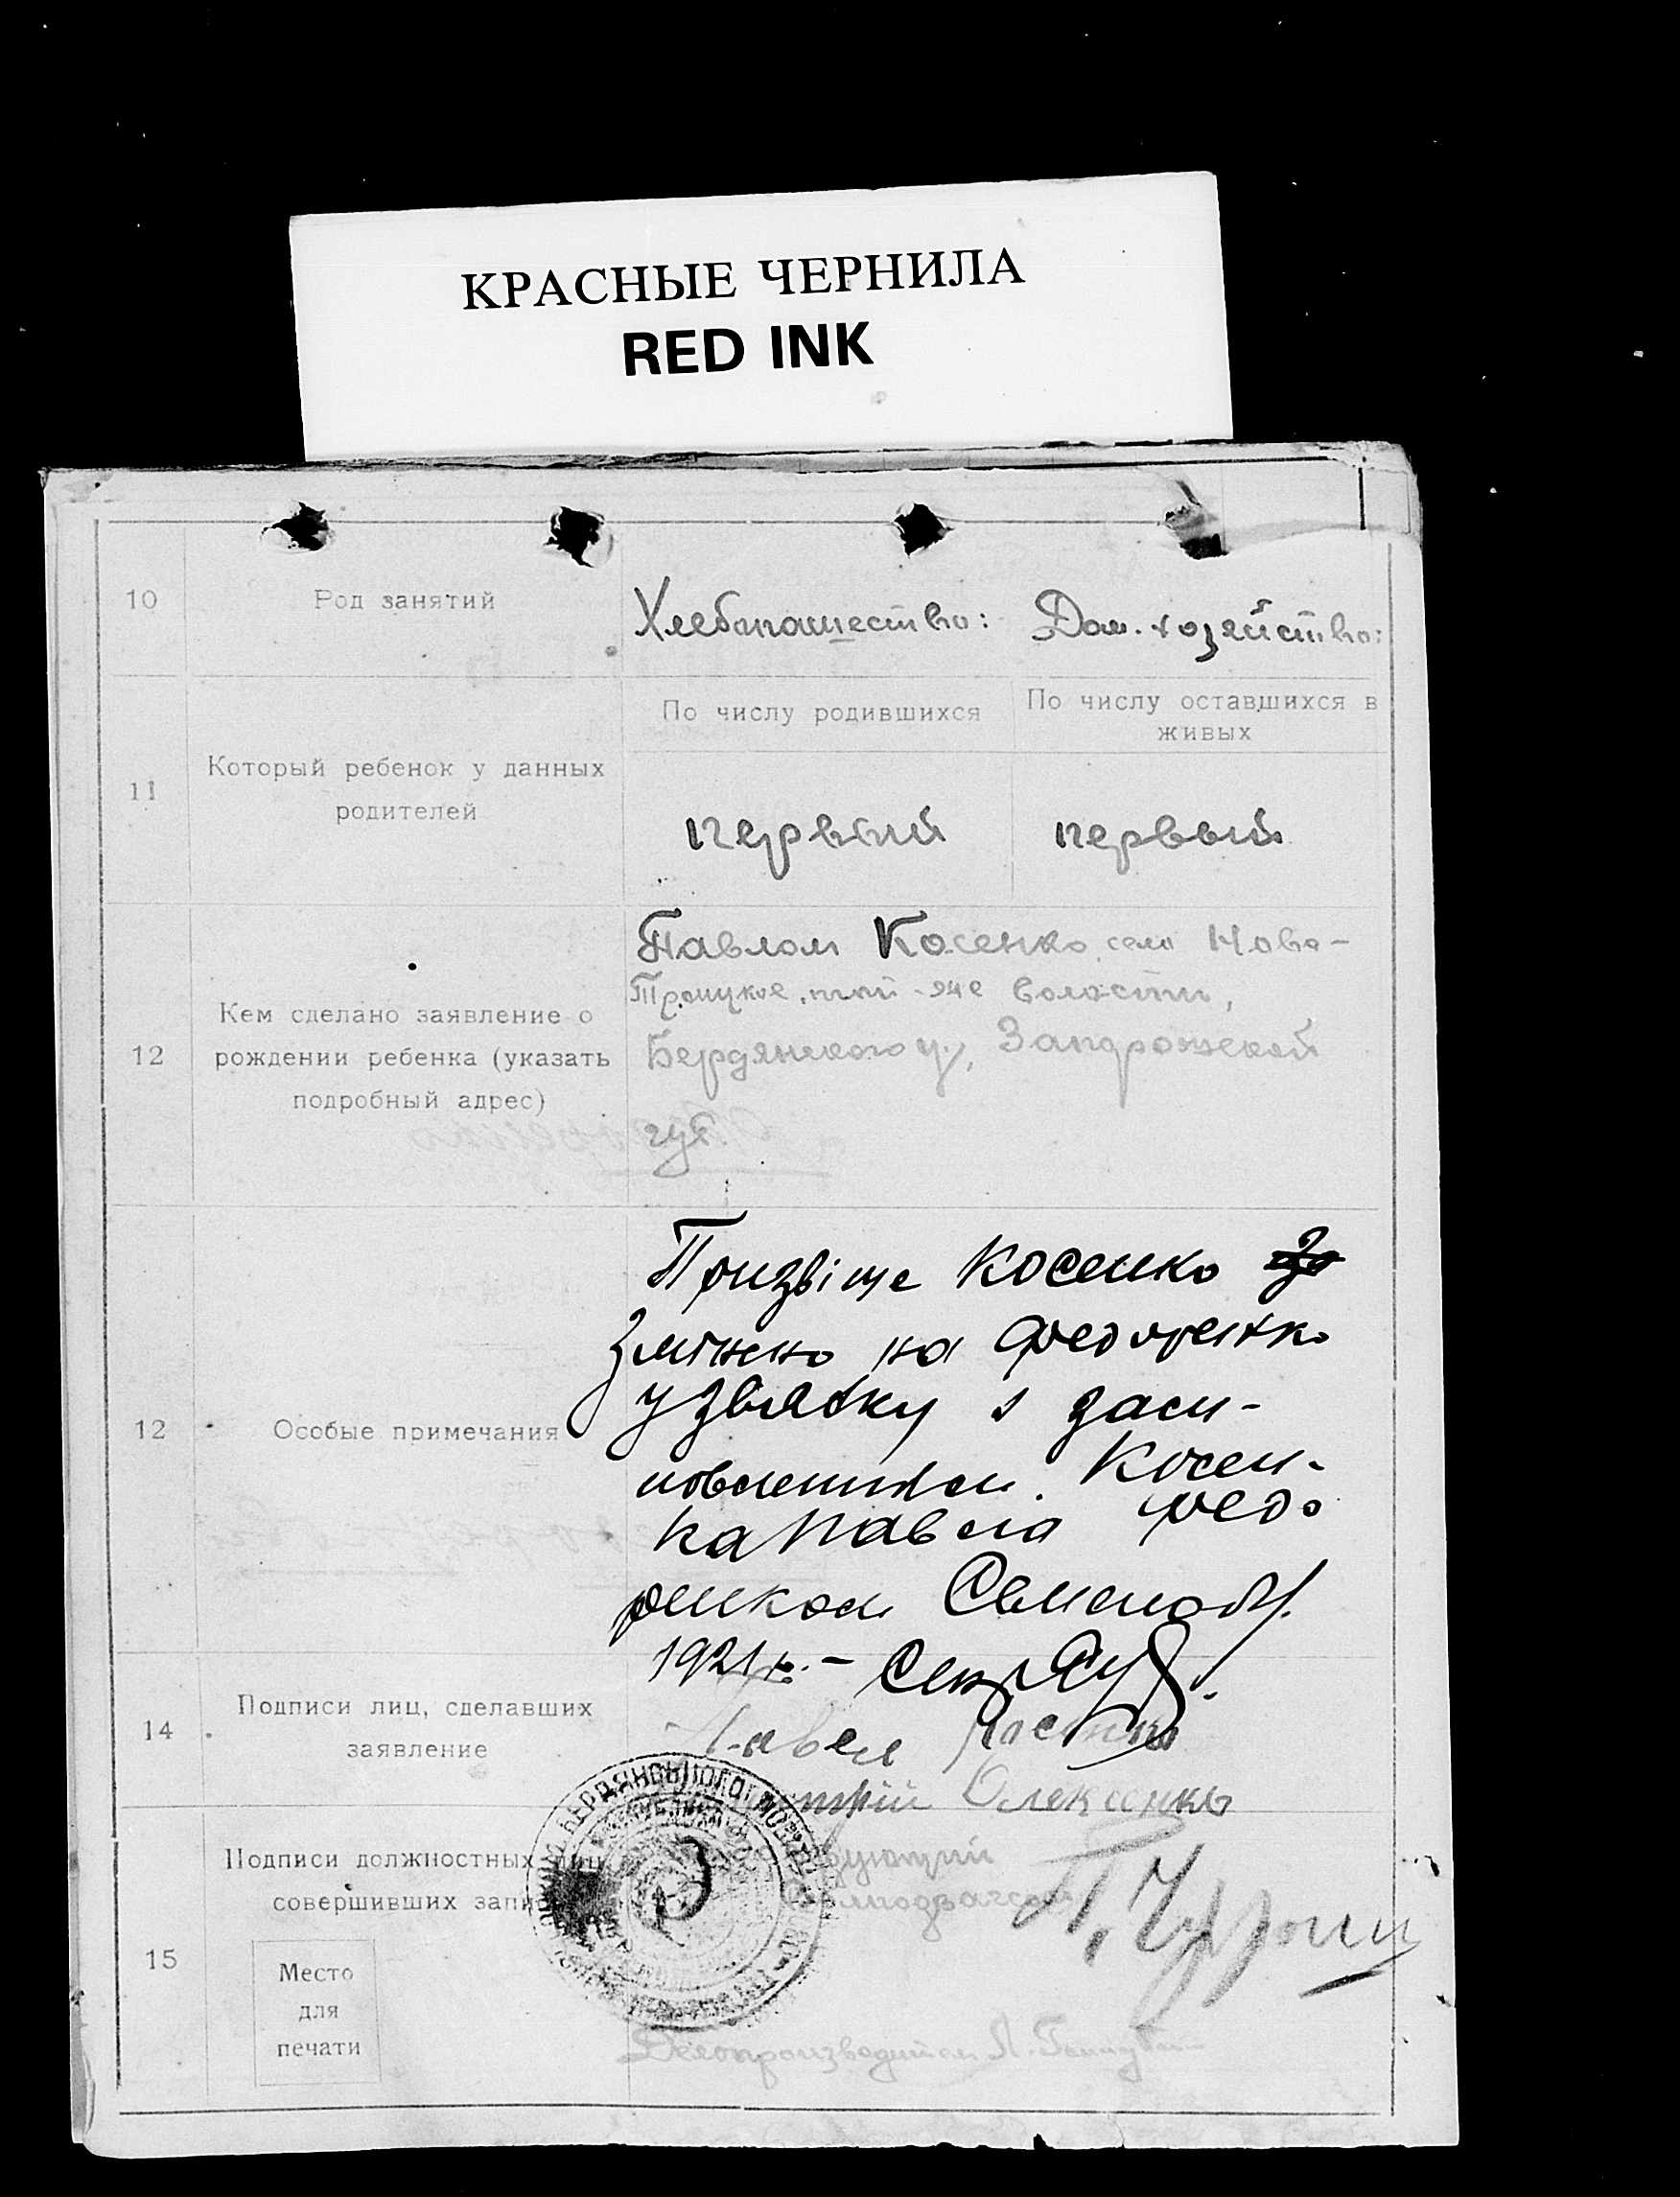 КРАСНЫЕ ЧЕРНИЛА
RED INK
10 Род занятий Хлебопашество: Дом. хозяйство:
По числу родившихся По числу оставшихся в
живых
11 Который ребенок у данных
родителей
первый первый
12 Кем сделано заявление о
рождении ребенка (указать
подробный адрес)
Павлом Косенко, село Ново-
Троицкое, той-же волости,
Бердянского у., Запорожской
губ.
12 Особые примечания
Призвіще Косенко
Змінено на Федоренко
у звязку з заси-
новленням Косен-
ка Павла Федо
ренком Семеном
1921 р. - Секр
14 Подписи лиц, сделавших
заявление
Павел Косенко
Олексенко
15 Подписи должностных лиц
совершивших запи
Место
для
печати
Делопроизводитель